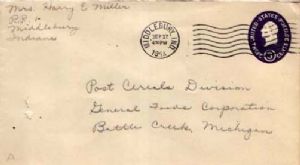 Mrs. Harry E Miller
R.R. 1
Middlebury
Indiana
MIDDLEBURY, IND.
SEP 17
4 PM
UNITED STATES POSTAGE
3
Post Cereals Division
General Foods Corporation
Battle Creek, Michigan